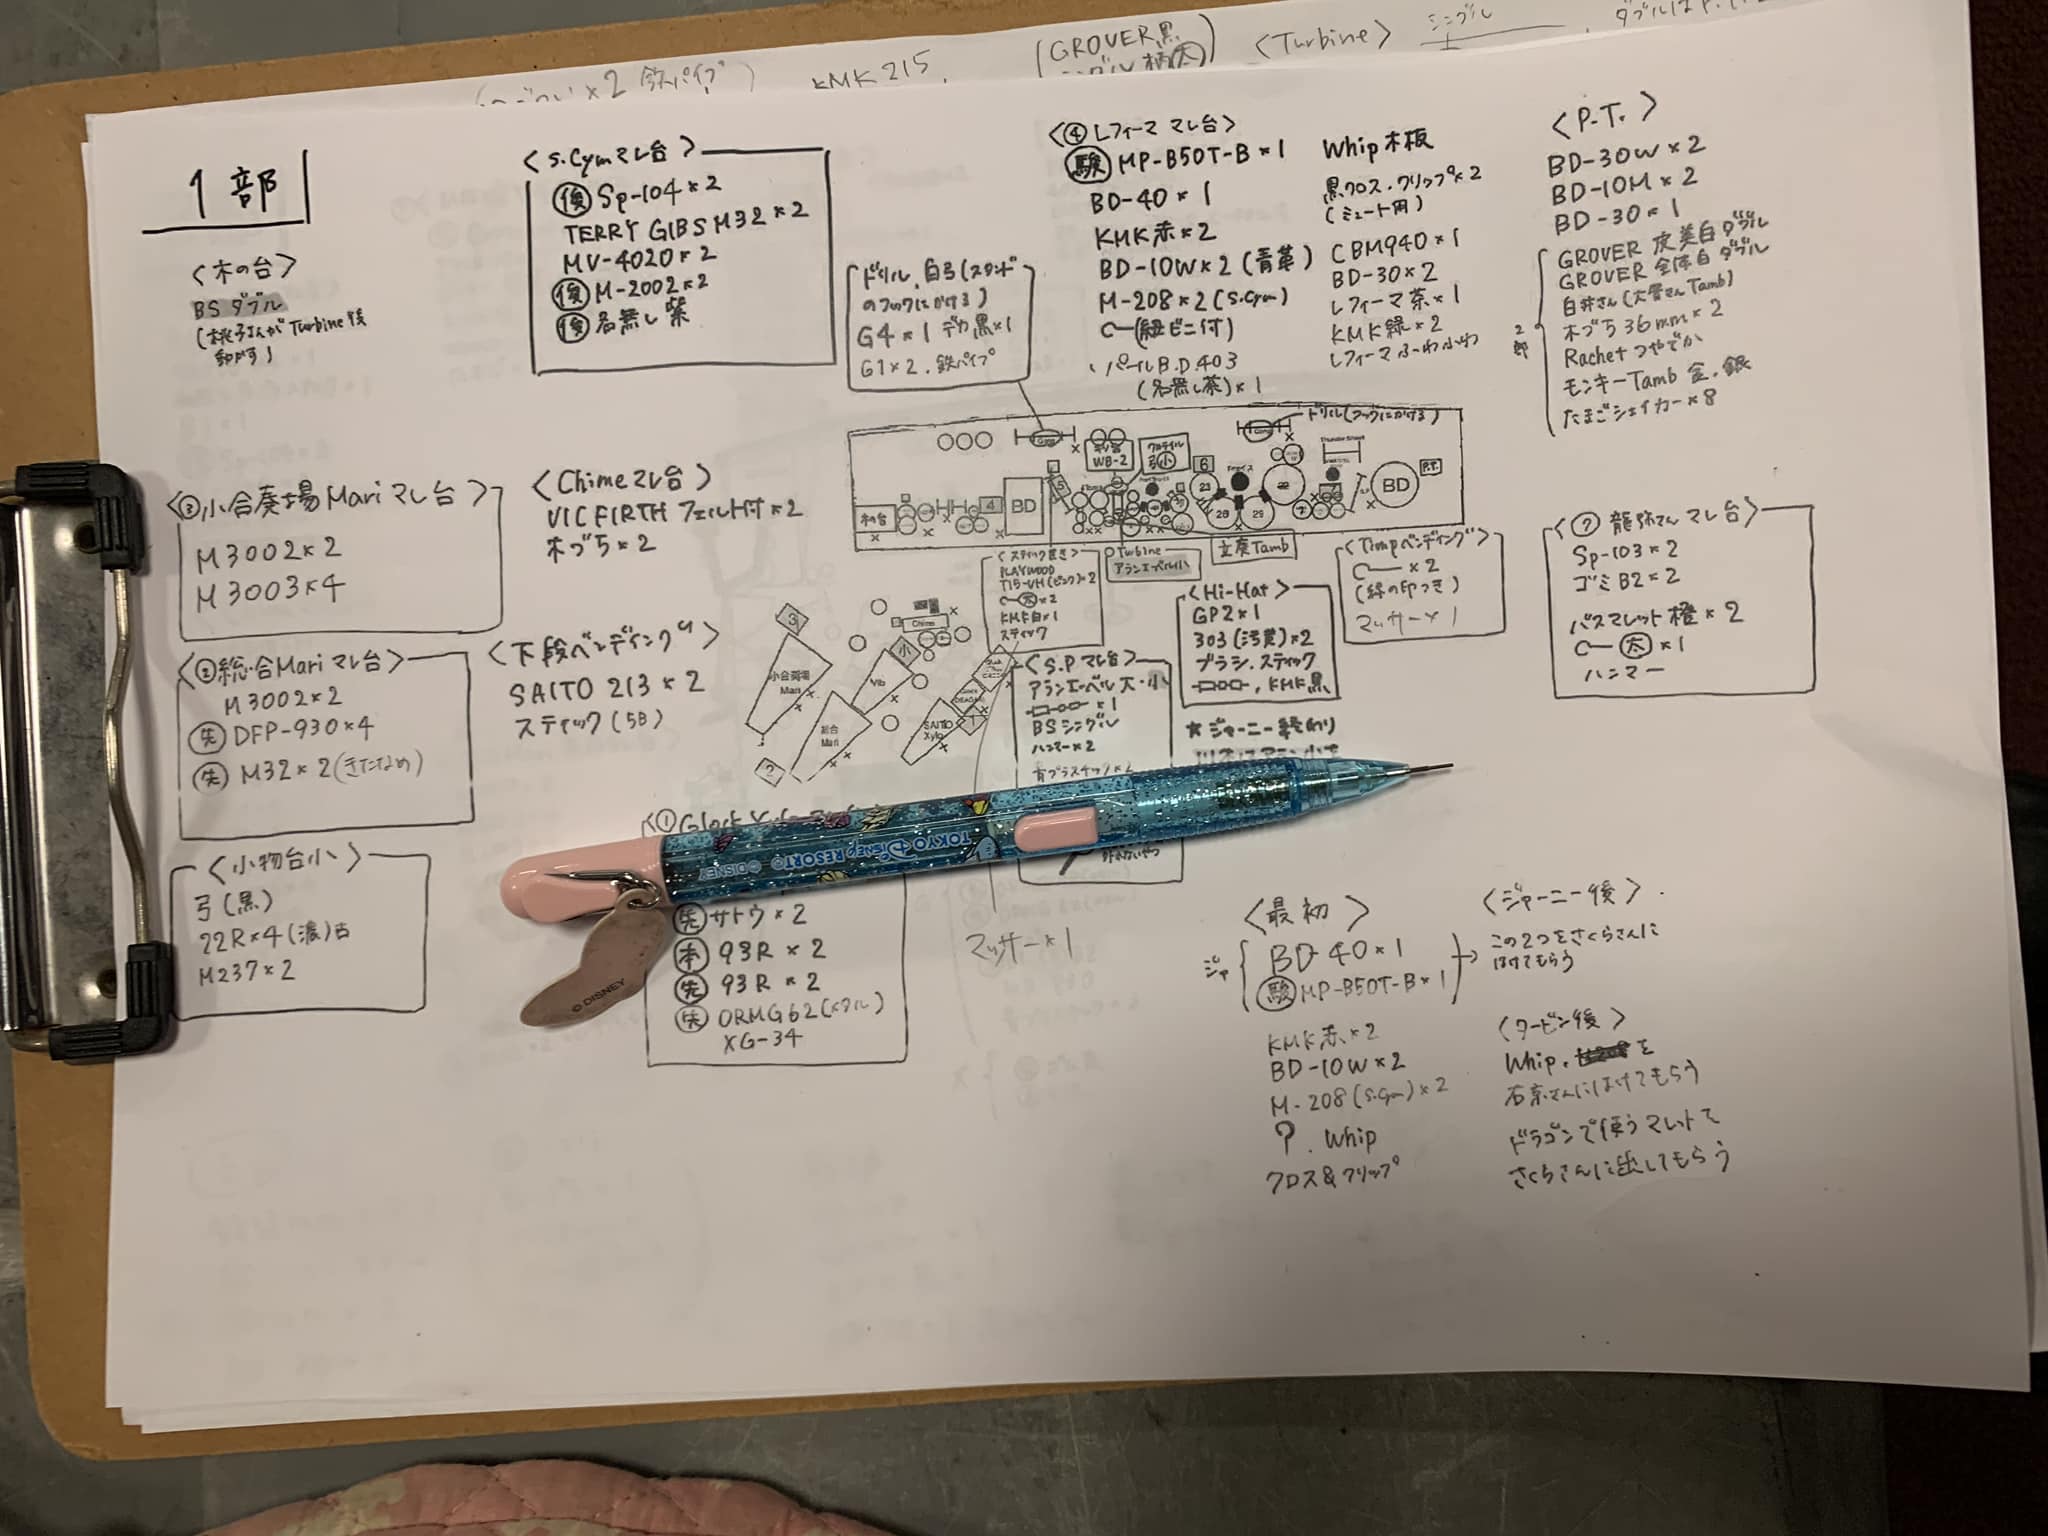 鉄パイプ
KMK215
GROVER黒
<Turbine>
シングル
1部
<木の台>
BS ダブル
<S.Cymマレ台>
俊 Sp-104×2
TERRY GIBS M32×2
MV-4020×2
俊 M-2002×2
俊 名無し紫
ドリル, 白弓(スタンド
のフックにかける)
G4×1 デカ黒×1
G1×2. 鉄パイプ
<④レフィーマ マレ台>
駿 MP-B50T-B×1
BD-40×1
KMK赤×2
BD-10W×2(青革)
M-208×2(S.Cym)
パールB.D.403
(名無し茶)×1
Whip木板
黒クロス・クリップ×2
(ミュート用)
CBM940×1
BD-30×2
レフィーマ茶×1
KMK緑×2
レフィーマふわふわ
<P.T.>
BD-30W×2
BD-10M×2
BD-30×1
2部
GROVER 皮美白ダブル
GROVER 全体白ダブル
木づち36mm×2
Rachet つやでか
モンキーTamb 金.銀
たまごシェイカー×8
<③小合奏場Mariマレ台>
M3002×2
M3003×4
<Chimeマレ台>
VIC FIRTH フェルト付×2
木づち×2
ドリル(フックにかける)
木の台
4
BD
5
WB-2
6
23
26
29
BD
P.T.
<スティック置き>
PLAYWOOD
太×2
KMK白×1
スティック
Turbine
アランエーベル小
立奏Tamb
<Timpベンディング>
×2
(緑の印つき)
マッサー×1
<⑦ 龍弥さん マレ台>
Sp-103×2
ゴミB2=2
バスマレット橙×2
太×1
ハンマー
<②総合Mariマレ台>
M3002×2
先 DFP-930×4
先 M32×2(きたなめ)
<下段ベンディング>
SAITO 213×2
スティック(5B)
3
小合奏場
Mari
Vib
小
Chime
総合
Mari
SAITO
Xylo
1
2
<Hi-Hat>
GP2×1
303(汚黄)×2
ブラシ.スティック
, KMK黒
<S.Pマレ台>
アランエーベル 大・小
×1
BSシングル
ハンマー×2
青プラスチック×2
★ジャーニー終わり
<小物台小>
弓(黒)
22R×4(濃)古
M237×2
<①Glock
TOKYO DISNEY RESORT © DISNEY
© DISNEY
先 サトウ×2
本 93R×2
先 93R×2
先 ORMG62(メタル)
XG-34
マッサー×1
<最初>
ジャ
BD-40×1
駿 MP-B50T-B×1
KMK赤×2
BD-10W×2
M-208(S.Cym)×2
?. Whip
クロス&クリップ
<ジャーニー後>
この2つをさくらさんに
はけてもらう
<タービン後>
Whip. を
石京さんにはけてもらう
ドラゴンで使うマレットを
さくらさんに出してもらう